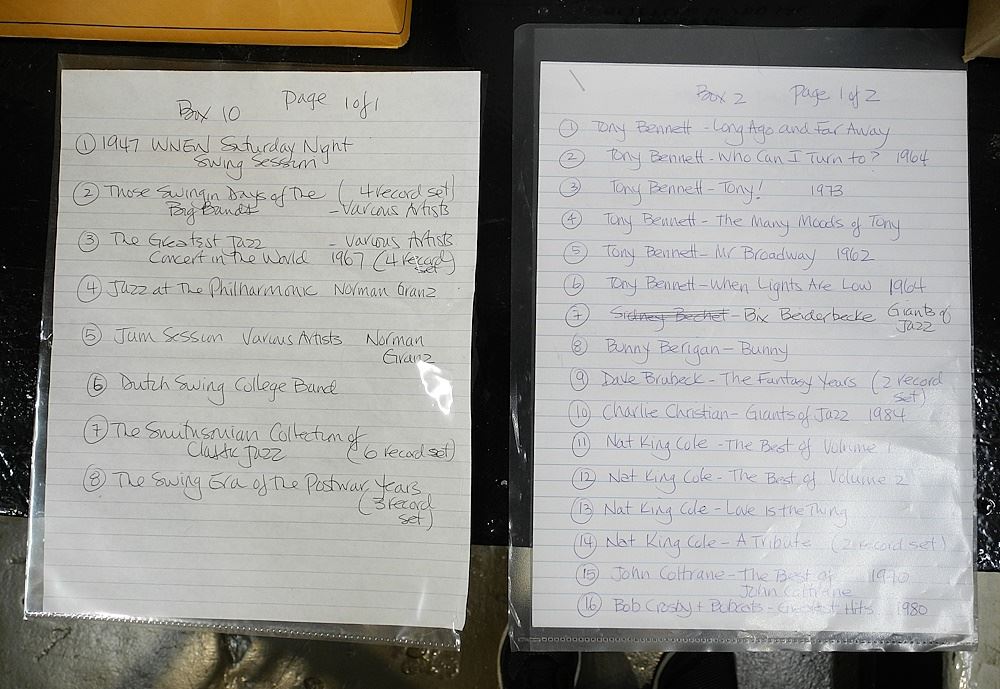 Box 10 Page 1 of 1
① 1947 WNEW Saturday Night
Swing Session
② Those Swingin Days of The (4 record set)
Big Bands - Various Artists
③ The Greatest Jazz - Various Artists
Concert in the World 1967 (4 record
set)
④ Jazz at The Philharmonic Norman Granz
⑤ Jam Session Various Artists Norman
Granz
⑥ Dutch Swing College Band
⑦ The Smithsonian Collection of
Classic Jazz (6 record set)
⑧ The Swing Era of the Postwar Years
(3 record
set)
Box 2 Page 1 of 2
① Tony Bennett - Long Ago and Far Away
② Tony Bennett - Who Can I Turn to? 1964
③ Tony Bennett - Tony! 1973
④ Tony Bennett - The Many Moods of Tony
⑤ Tony Bennett - Mr Broadway 1962
⑥ Tony Bennett - When Lights Are Low 1964
⑦ Sidney Bechet - Bix Beiderbecke Giants of
Jazz
⑧ Bunny Berigan - Bunny
⑨ Dave Brubeck - The Fantasy Years (2 record
set)
⑩ Charlie Christian - Giants of Jazz 1984
⑪ Nat King Cole - The Best of Volume 1
⑫ Nat King Cole - The Best of Volume 2
⑬ Nat King Cole - Love Is the Thing
⑭ Nat King Cole - A Tribute (2 record set)
⑮ John Coltrane - The Best of 1970
John Coltrane
⑯ Bob Crosby + Bobcats - Greatest Hits 1980